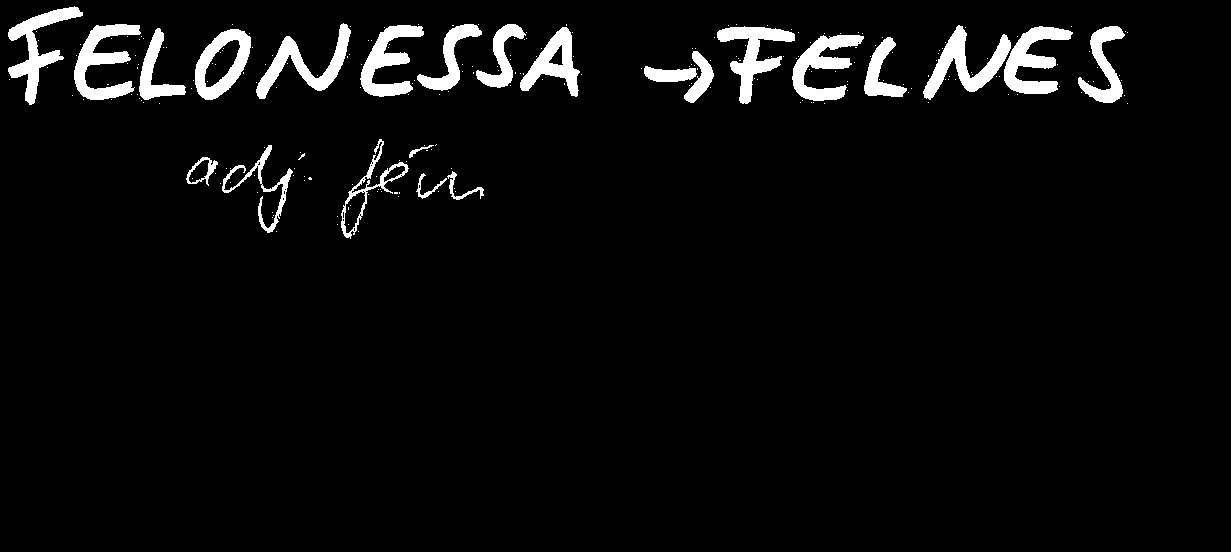 FELONESSA → FELNES
adj. fém